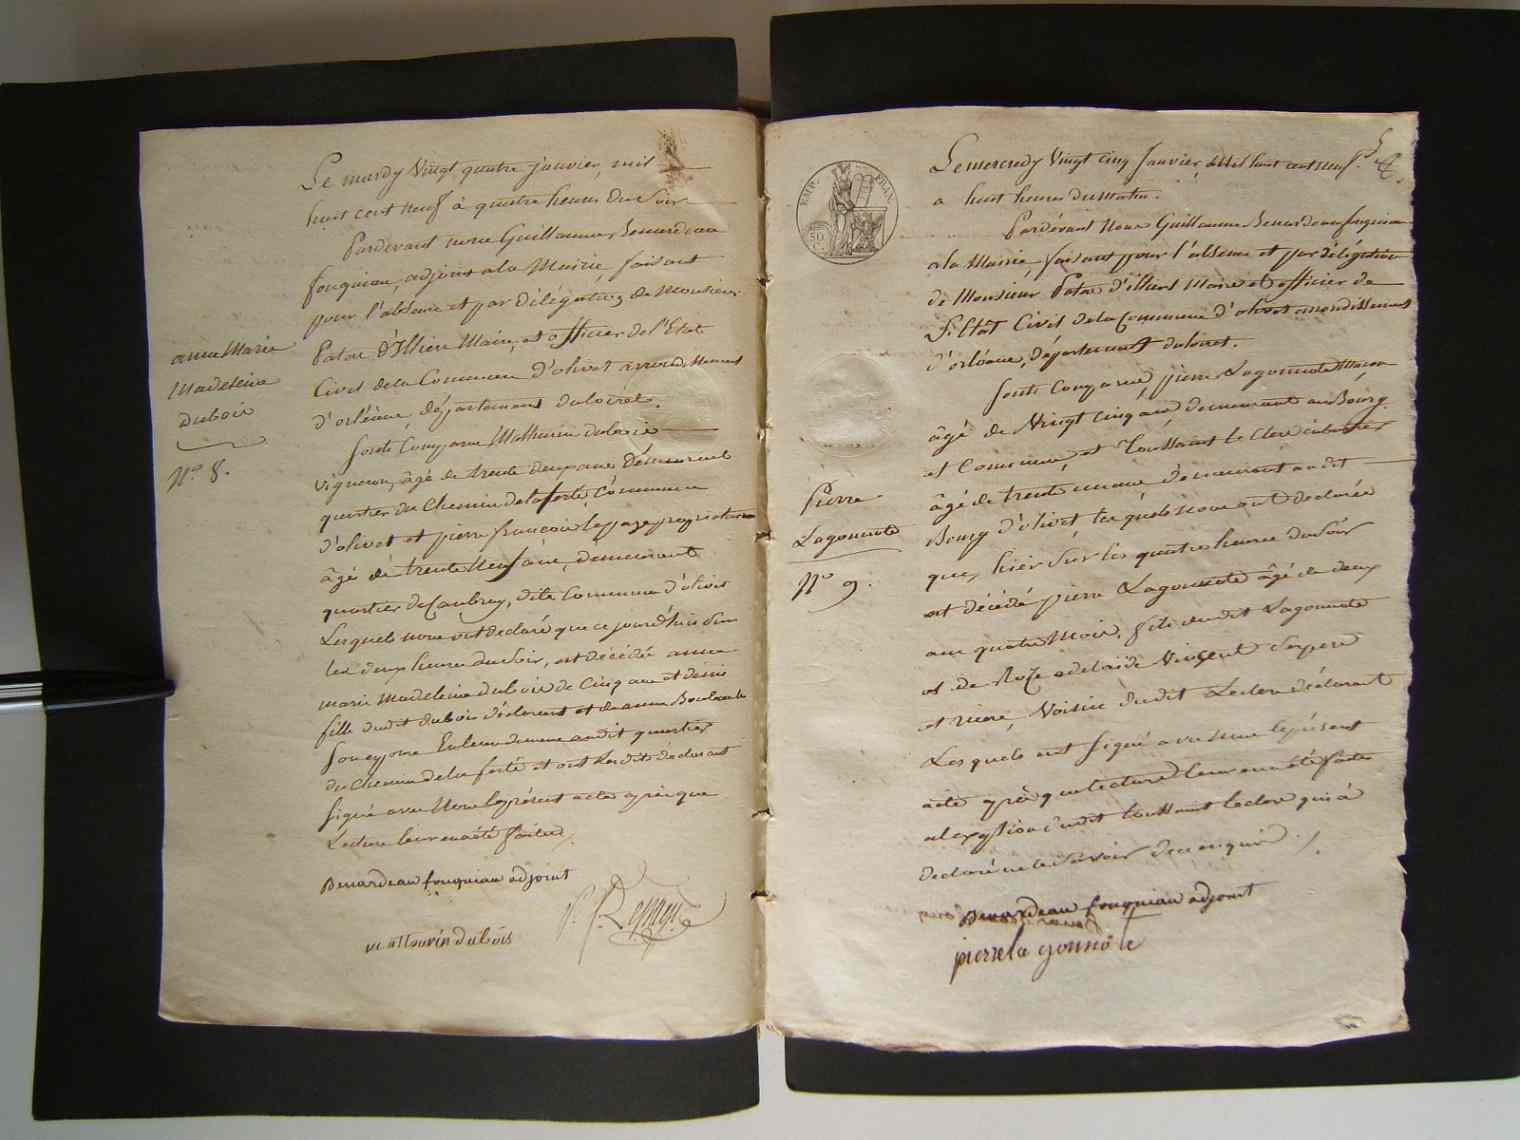 anne Marie
Madeleine
dubois
N.º 8.
Le mardy Vingt quatre janvier, mil
huit cent neuf à quatre heures du soir
Pardevant nous Guillaume Benardeau
fouqniau, adjoint a la Mairie, faisant
pour l'absence et par délégation de Monsieur
Patas d'Illiers Maire, et officier de l'Etat
Civil de la Commune d'olivet arrondissement
d'orléans, département du loiret.
sont Comparus Mathurin dubois
vigneron, âgé de trente deux ans demeurant
quartier du Chemin de la ferté Commune
d'olivet et pierre françois lepage propriétaire
âgé de trente Neuf ans, demeurant
quartier de Caubray, dite Commune d'olivet
Lesquels nous ont declaré que ce jourd'hui sur
les deux heures du soir, est décédée anne
marie Madeleine dubois de Cinq ans et demi
fille dudit dubois déclarant et de anne
son epouse En leur demeure audit quartier
du Chemin de la ferté et ont lesdits déclarant
signé avec Nous le présent acte après que
Lecture leur en a été faite
Benardeau fouqniau adjoint
P. f. Lepage
matourin dubois
EMP. FRAN.
50
C.
Pierre
Lagounote
N.º 9.
Le mercredy Vingt cinq Janvier, Mil huit cent neuf
a huit heures du matin.
Pardevant Nous Guillaume Benardeau fouqniau
a la Mairie, faisant pour l'absence et par délégation
de Monsieur Patas d'illiers Maire et officier de
l'Etat Civil de la Commune d'olivet arrondissement
d'orléans, département du loiret.
sont Comparus, pierre Lagounote Macon
âgé de Vingt cinq ans demeurant au Bourg
et Commune, et Toussaint Le Clerc
âgé de trente un ans demeurant audit
Bourg d'olivet, lesquels nous ont declarés
que, hier sur les quatre heures du soir
est décédé pierre Lagounote âgé de deux
ans quatre Mois, fils dudit Lagounote
et de Roze adelaide Vincent ses pere
et mere, Voisin dudit Leclerc déclarant
Lesquels ont signé avec nous le présent
acte après que lecture leur en a été faite
a l'exception dudit toussaint leclerc qui a
declaré ne le savoir de ce enquis.
Benardeau fouqniau adjoint
pierre la gounote